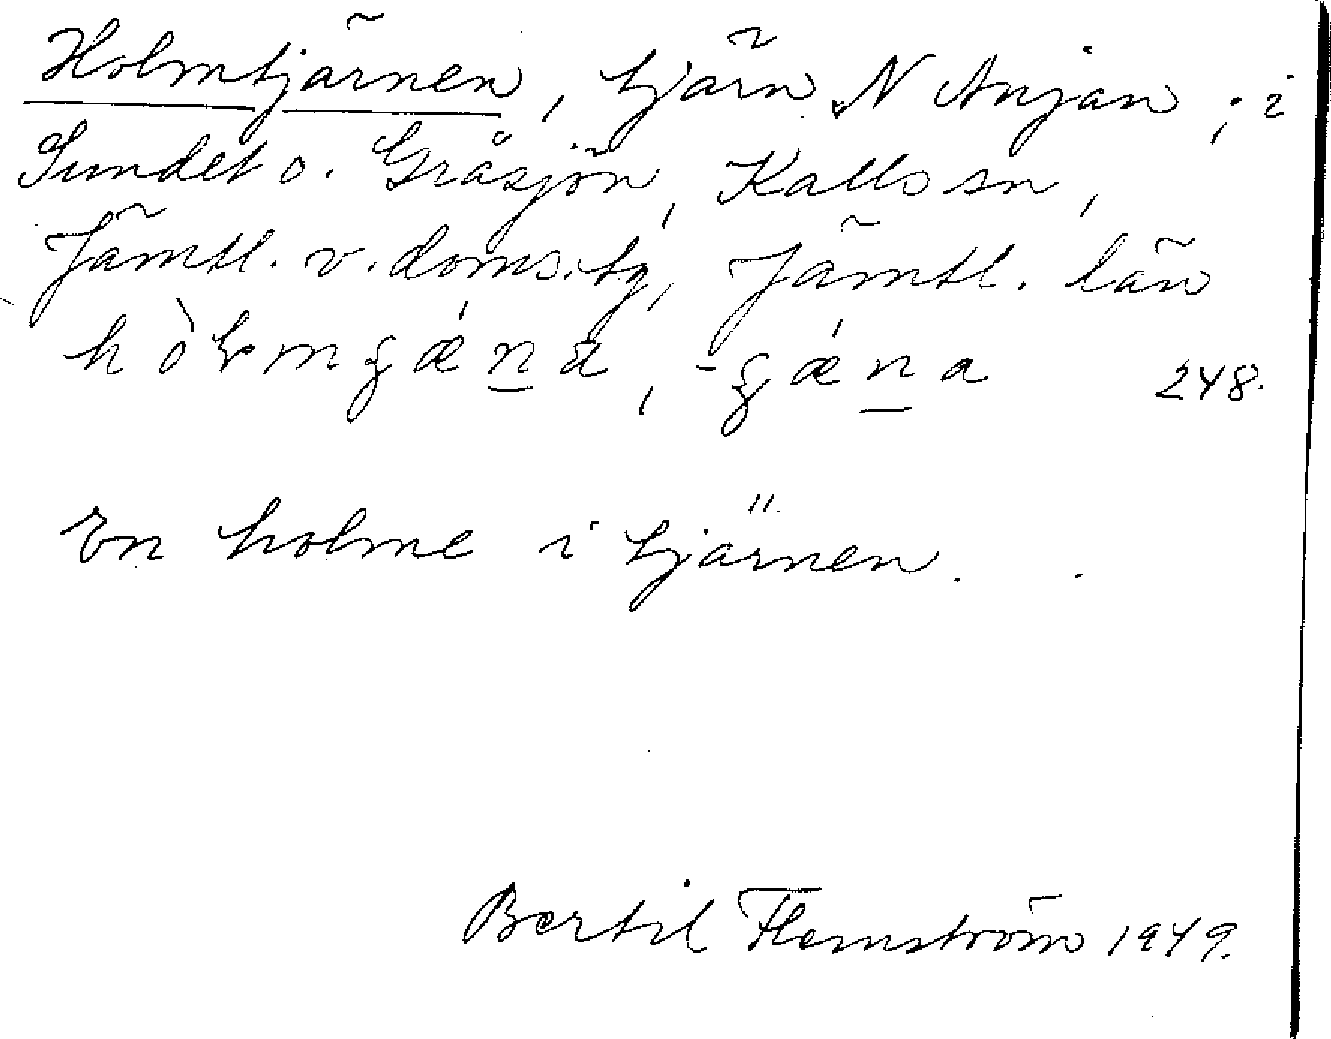 Holmtjärnen, tjärn N Anjan; i
Sundet o. Gråsjön, Kalls sn,
Jämtl. v. doms.tg, Jämtl. län
248.
En holme i tjärnen.
Bertil Flemström 1949.